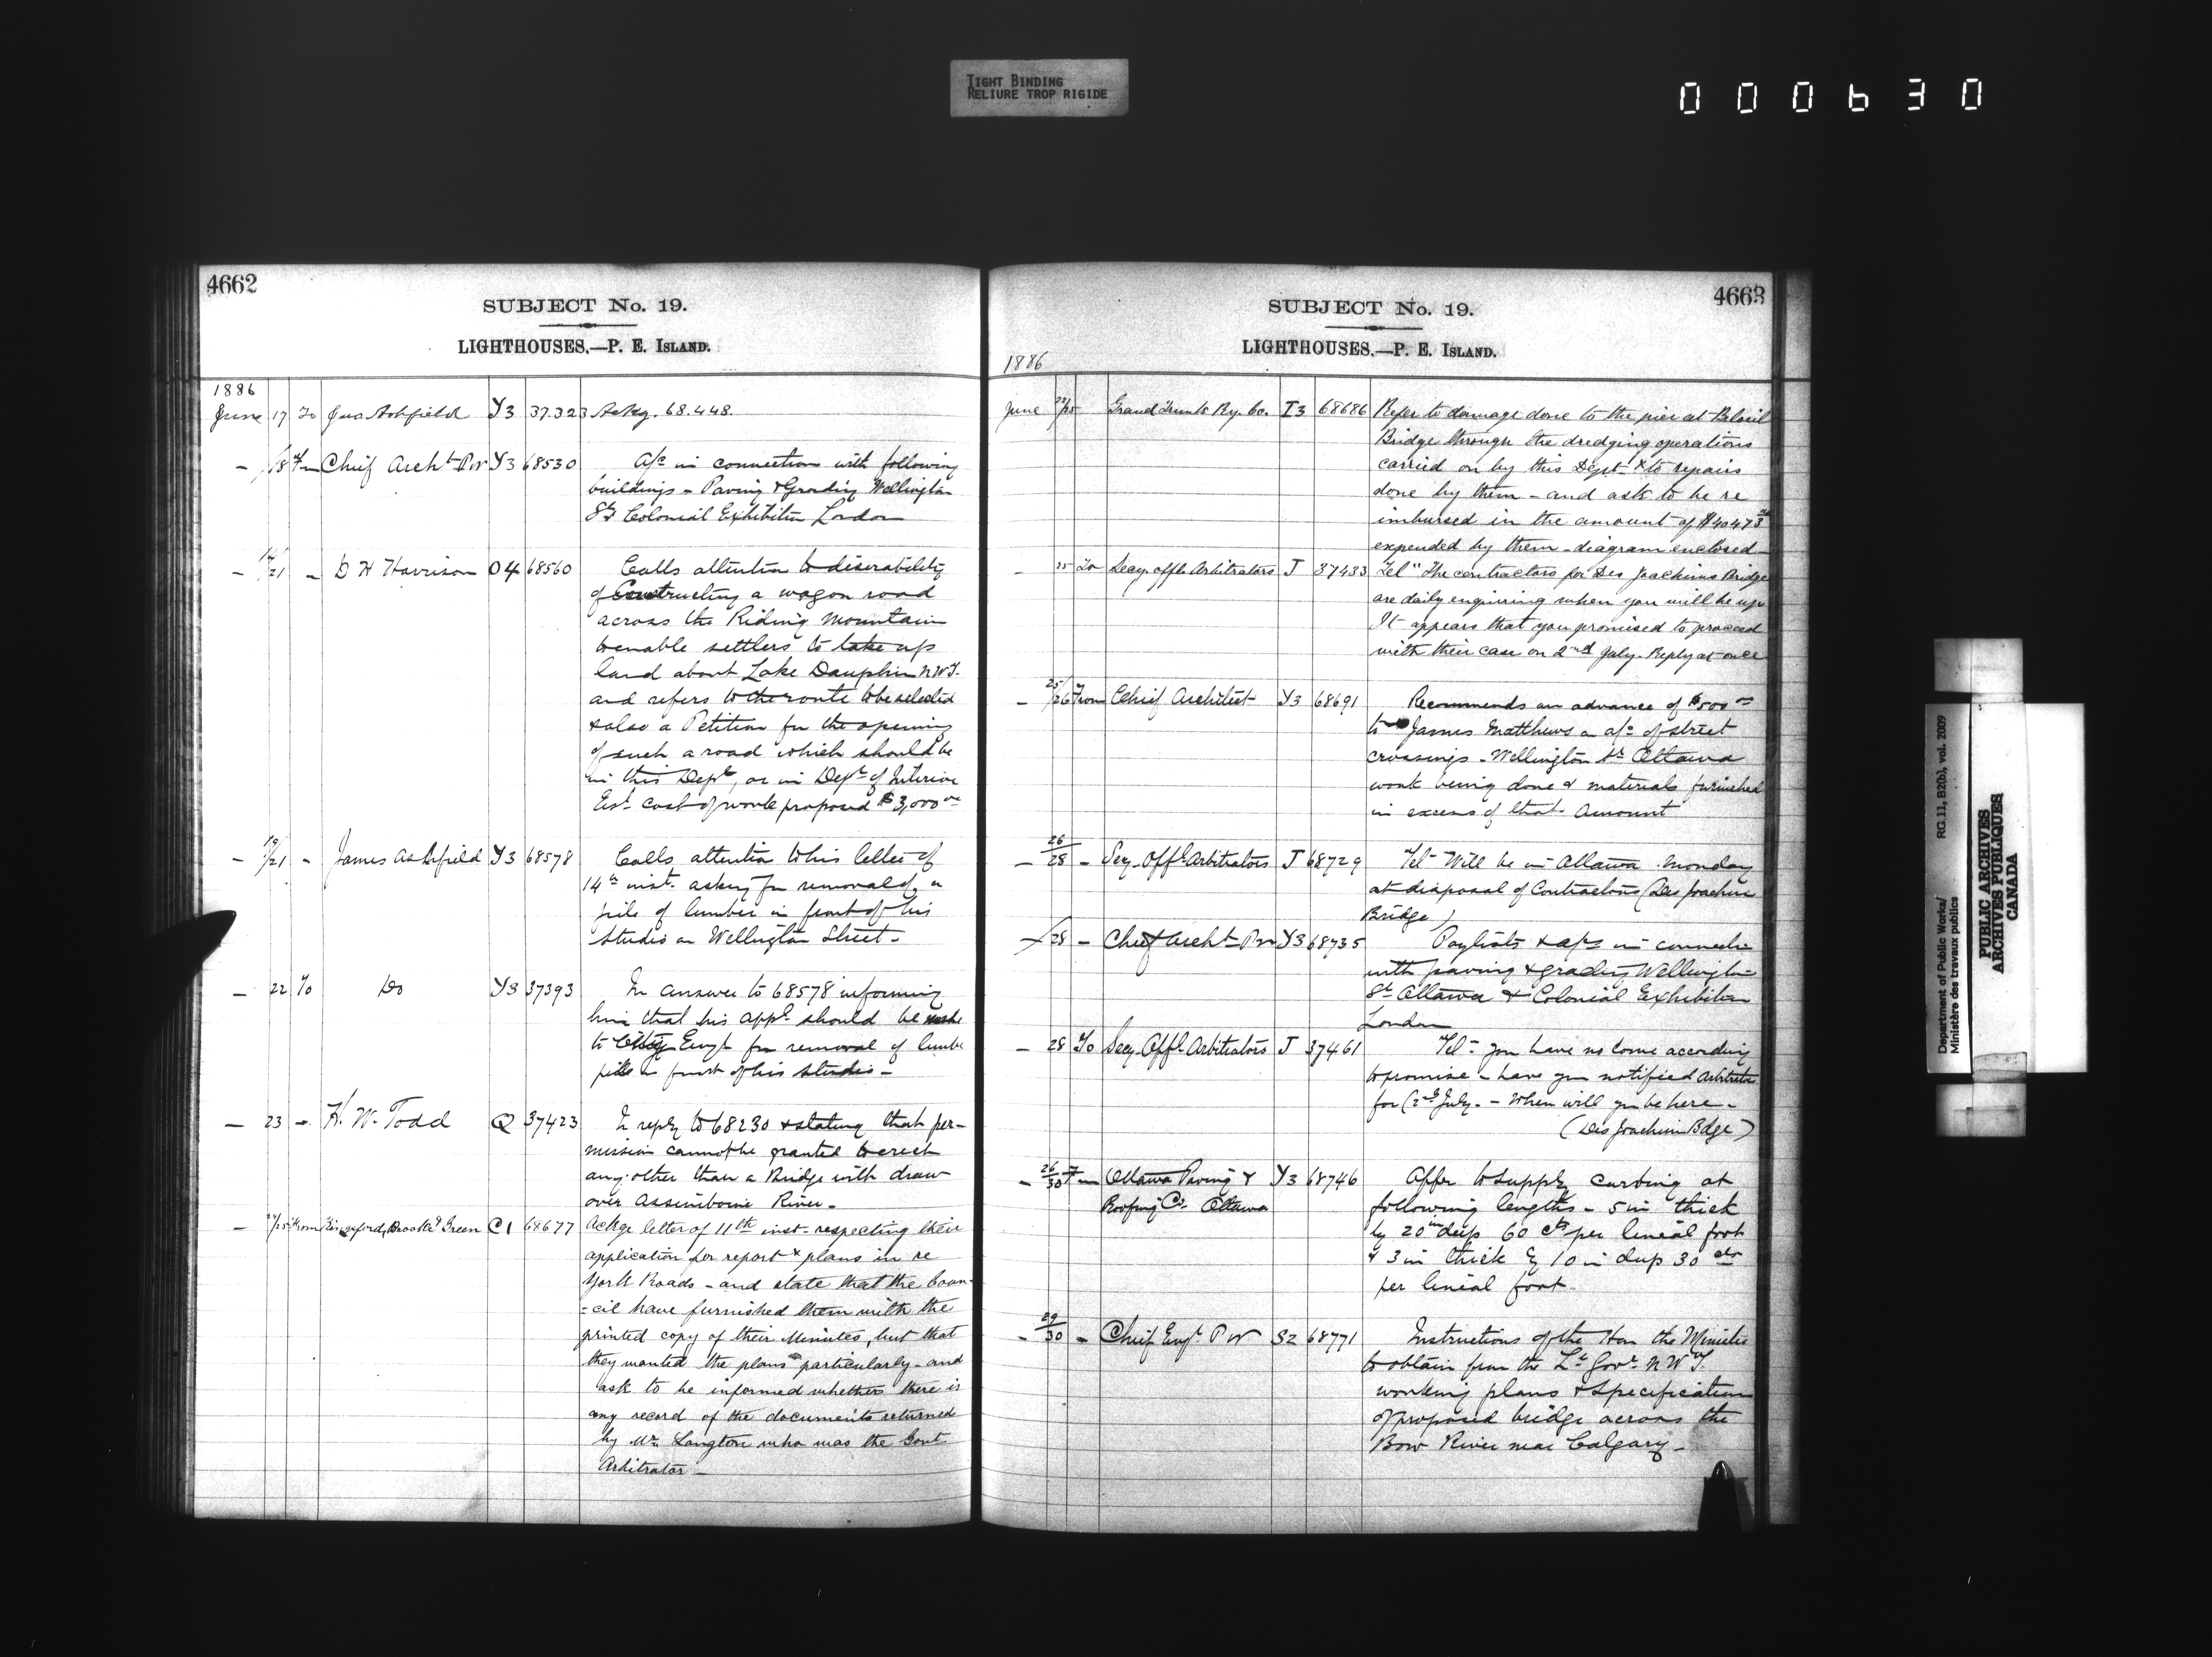 TIGHT BINDING
RELIURE TROP RIGIDE
000630
4662
SUBJECT No. 19.
LIGHTHOUSES.—P. E. ISLAND.
1886
June 17 To Jas Ashfield Y3 37.323 Ackg. 68.448.
— /18 Fm Chief Archt P W Y3 68530 A/c in connection with following
buildings - Paving & Grading Wellington
St Colonial Exhibition London
— 14/21 — D H Harrison O4 68560 Calls attention to disirability
of Constructing a wagon road
across the Riding Mountain
to enable settlers to take up
land about Lake Dauphin N.W.T.
and refers to the route to be selected
& also a Petition for the opening
of such a road which should be
in this Dept, or in Dept of Interior
Est. cost of work proposed $3,000 00
— 19/21 — James Ashfield Y3 68578 Calls attention to his letter of
14th inst. asking for removal of a
pile of lumber in front of his
Studio on Wellington Street -
— 22 To Do Y3 37393 In answer to 68578 informing
him that his appl. should be made
to City Engr for removal of lumber
pile in front of his studio -
— 23 — H. W. Todd Q 37423 In reply to 68230 & stating that per-
mission cannot be granted to erect
any other than a Bridge with draw
over Assiniboine River -
— /25 From Kingsford, Brooke & Green C1 68677 Ackge letter of 11th inst. respecting their
application for report & plans in re
York Roads - and state that the Coun-
=cil have furnished them with the
printed copy of their Minutes, but that
they wanted the plans particularly - and
ask to be informed whether there is
any record of the documents returned
by Mr. Langton who was the Govt
Arbitrator -
4663
SUBJECT No. 19.
LIGHTHOUSES.—P. E. ISLAND.
1886
June 22/25 Grand Trunk Ry. Co. I3 68686 Refer to damage done to the pier at Beloeil
Bridge through the dredging operations
carried on by this Dept. & to repairs
done by them - and ask to be re
imbursed in the amount of $40473
expended by them - diagram enclosed -
— 25 To Secy. Offl. Arbitrators J 37433 Tel "The contractors for Des Joachims Bridge
are daily enquiring when you will be up
It appears that you promised to proceed
with their case on 2nd July. Reply at once
— 25/26 From Chief Architect Y3 68691 Recommends an advance of $500 00
to James Matthews on a/c of street
crossings - Wellington St Ottawa
work being done & materials furnished
in excess of that Amount
— 26/28 — Secy. Offl. Arbitrators J 68729 Tel - Will be in Ottawa Monday
at disposal of Contractors (Des Joachim
Bridge)
— /28 — Chief Archt P W Y3 68735 Paylists & a/cs in connection
with paving & grading Wellington
St Ottawa & Colonial Exhibition
London
— 28 To Secy. Offl. Arbitrators J 37461 Tel - you have no come according
to promise - have you notified Arbitrator
for (2nd July. - When will you be here -
(Des Joachim Bdge)
— 26/30 Fm Ottawa Paving & Y3 68746 Offer to supply curbing at
Roofing Co. Ottawa following lengths - 5 in thick
by 20 in deep 60 cts per lineal foot
& 3 in thick by 10 in deep 30 cts
per lineal foot.
— 29/30 — Chief Engr P W S2 68771 Instructions of the Hon the Minister
to obtain from the Lt Govr. N W T.
working plans & specification
of proposed bridge across the
Bow River near Calgary -
Department of Public Works/
Ministère des travaux publics
RG 11, B2(b), vol. 2009
PUBLIC ARCHIVES
ARCHIVES PUBLIQUES
CANADA